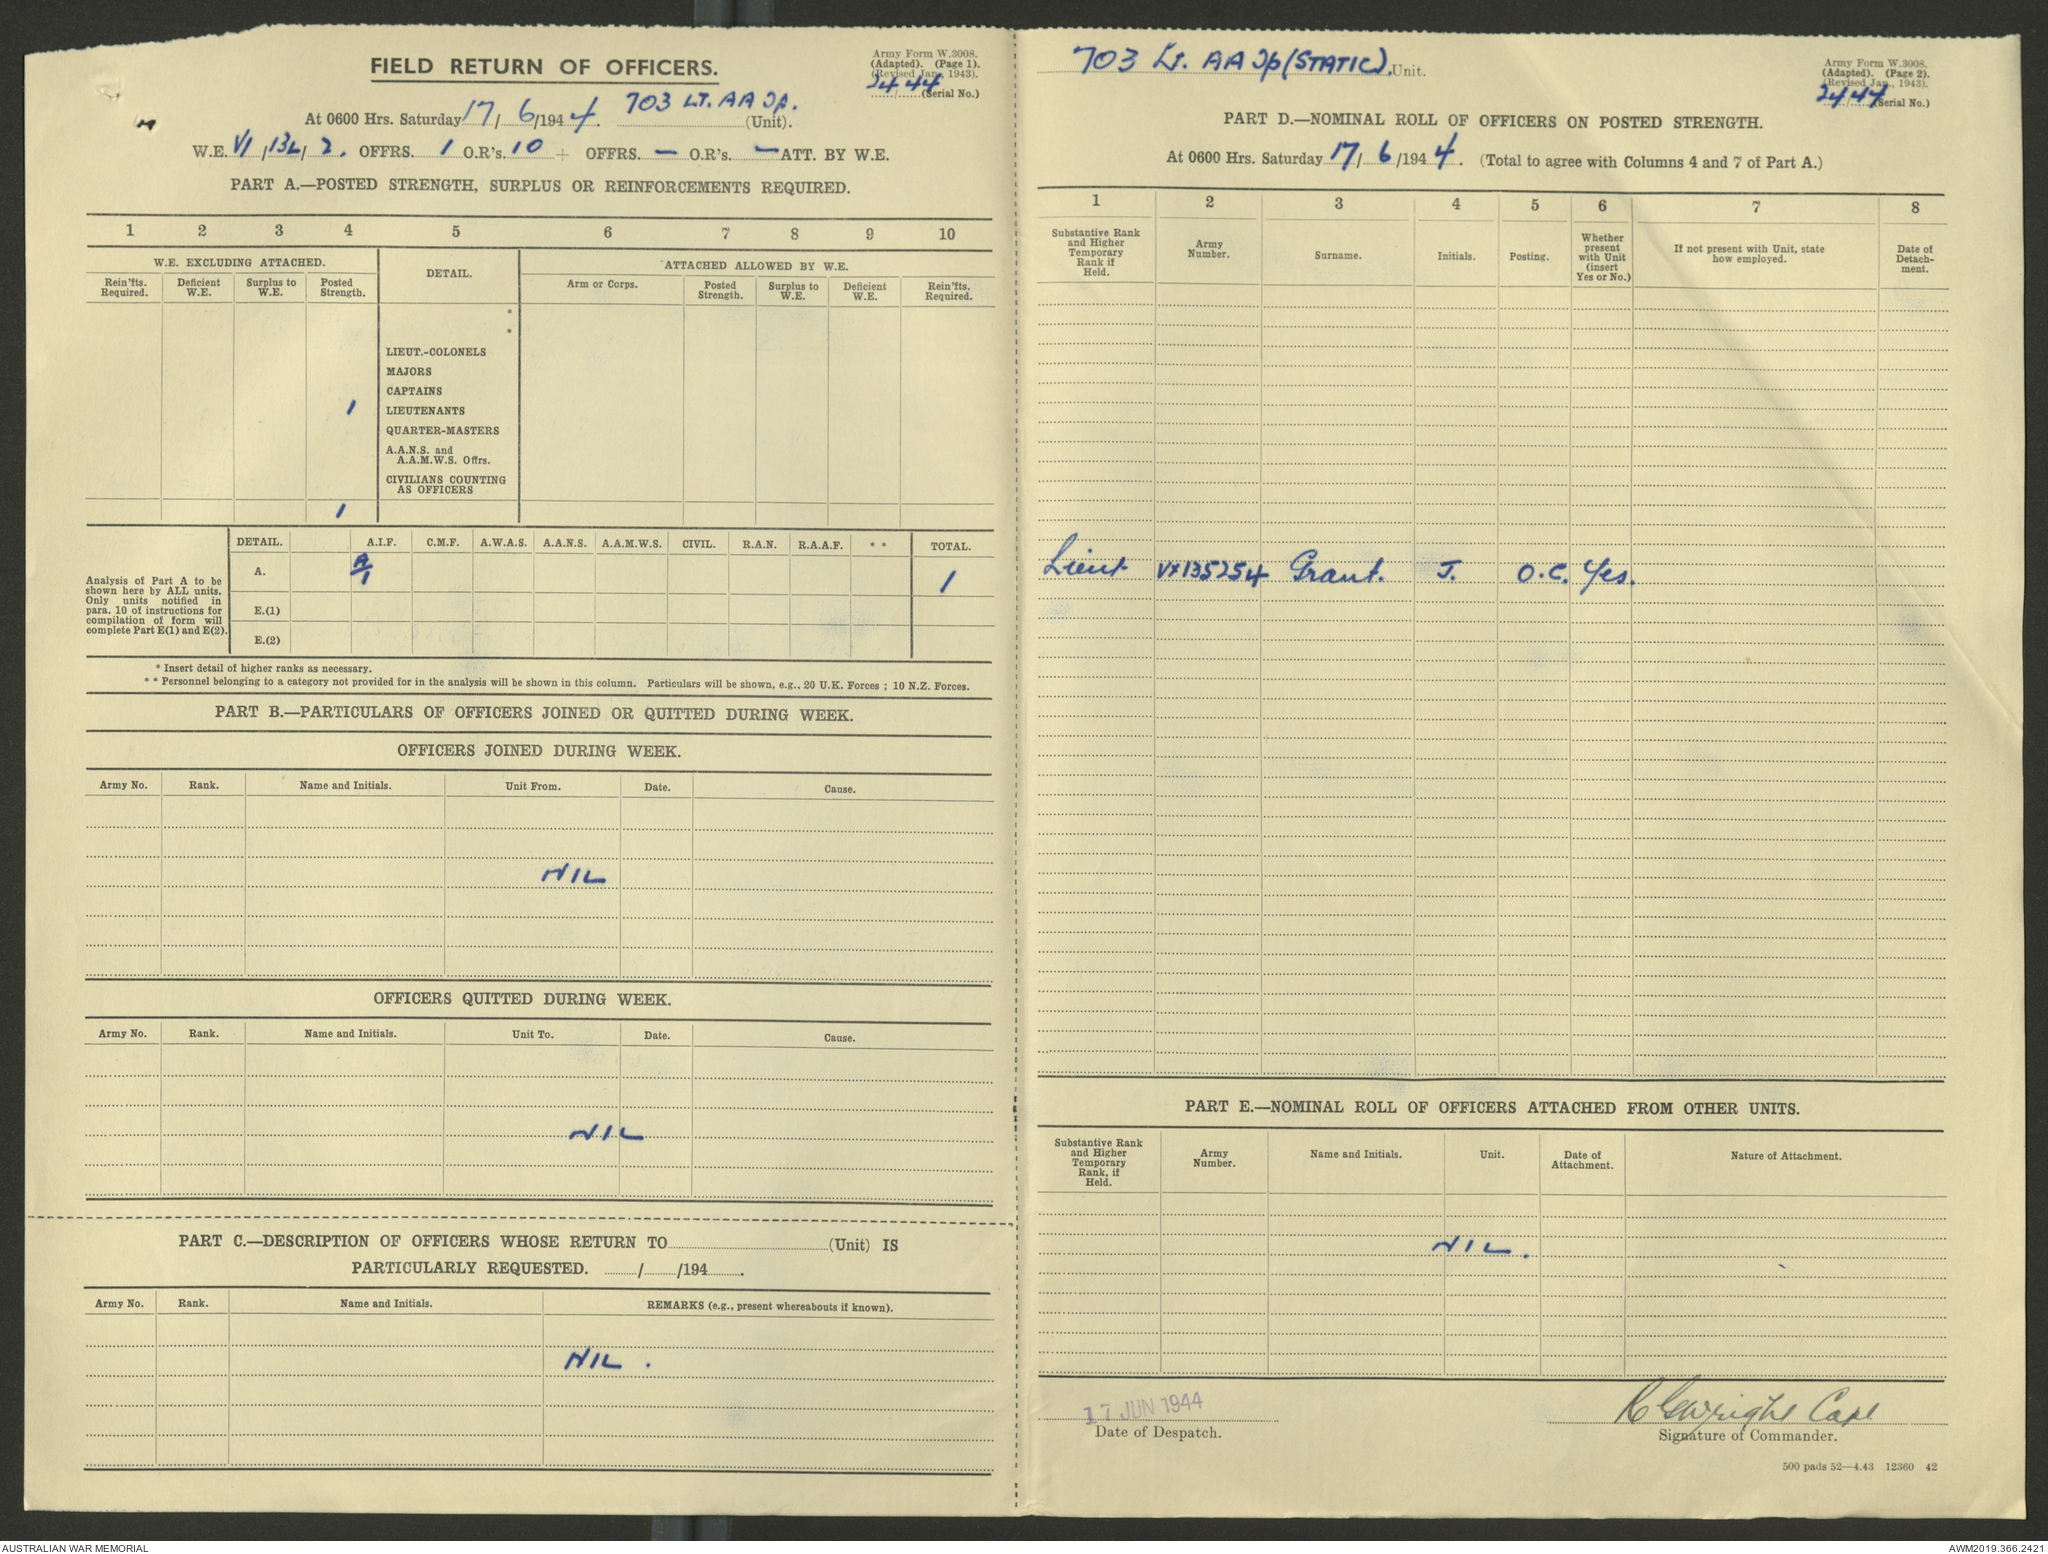 FIELD RETURN OF OFFICERS.
Army Form W.3008.
(Adapted). (Page 1).
(Revised Jan., 1943).
24/44 (Serial No.)
At 0600 Hrs. Saturday 17/6/1944. 703 LT. AA Tp. (Unit).
W.E. VI/13L/2. OFFRS. 1 O.R's. 10 + OFFRS. — O.R's. — ATT. BY W.E.
PART A.—POSTED STRENGTH, SURPLUS OR REINFORCEMENTS REQUIRED.
1 2 3 4 5 6 7 8 9 10
W.E. EXCLUDING ATTACHED.
DETAIL.
ATTACHED ALLOWED BY W.E.
Rein'fts. Required.
Deficient W.E.
Surplus to W.E.
Posted Strength.
Arm or Corps.
Posted Strength.
Surplus to W.E.
Deficient W.E.
Rein'fts. Required.
*
*
LIEUT.-COLONELS
MAJORS
CAPTAINS
1 LIEUTENANTS
QUARTER-MASTERS
A.A.N.S. and
A.A.M.W.S. Offrs.
CIVILIANS COUNTING
AS OFFICERS
1
Analysis of Part A to be
shown here by ALL units.
Only units notified in
para. 10 of instructions for
compilation of form will
complete Part E(1) and E(2).
DETAIL. A.I.F. C.M.F. A.W.A.S. A.A.N.S. A.A.M.W.S. CIVIL. R.A.N. R.A.A.F. * * TOTAL.
A. A/1 1
E.(1)
E.(2)
* Insert detail of higher ranks as necessary.
* * Personnel belonging to a category not provided for in the analysis will be shown in this column. Particulars will be shown, e.g., 20 U.K. Forces ; 10 N.Z. Forces.
PART B.—PARTICULARS OF OFFICERS JOINED OR QUITTED DURING WEEK.
OFFICERS JOINED DURING WEEK.
Army No. Rank. Name and Initials. Unit From. Date. Cause.
NIL
OFFICERS QUITTED DURING WEEK.
Army No. Rank. Name and Initials. Unit To. Date. Cause.
NIL
PART C.—DESCRIPTION OF OFFICERS WHOSE RETURN TO (Unit) IS
PARTICULARLY REQUESTED. / /194 .
Army No. Rank. Name and Initials. REMARKS (e.g., present whereabouts if known).
NIL .
703 Lt. AA Tp (STATIC). Unit.
Army Form W.3008.
(Adapted). (Page 2).
(Revised Jan., 1943).
24/44 (Serial No.)
PART D.—NOMINAL ROLL OF OFFICERS ON POSTED STRENGTH.
At 0600 Hrs. Saturday 17/6/1944. (Total to agree with Columns 4 and 7 of Part A.)
1 2 3 4 5 6 7 8
Substantive Rank and Higher Temporary Rank if Held.
Army Number.
Surname.
Initials.
Posting.
Whether present with Unit (insert Yes or No.)
If not present with Unit, state how employed.
Date of Detach-ment.
Lieut VX135254 Grant. J. O.C. Yes.
PART E.—NOMINAL ROLL OF OFFICERS ATTACHED FROM OTHER UNITS.
Substantive Rank and Higher Temporary Rank, if Held.
Army Number.
Name and Initials.
Unit.
Date of Attachment.
Nature of Attachment.
NIL.
17 JUN 1944
Date of Despatch.
Wright Capt
Signature of Commander.
500 pads 52—4.43 12360 42
AUSTRALIAN WAR MEMORIAL
AWM2019.366.2421